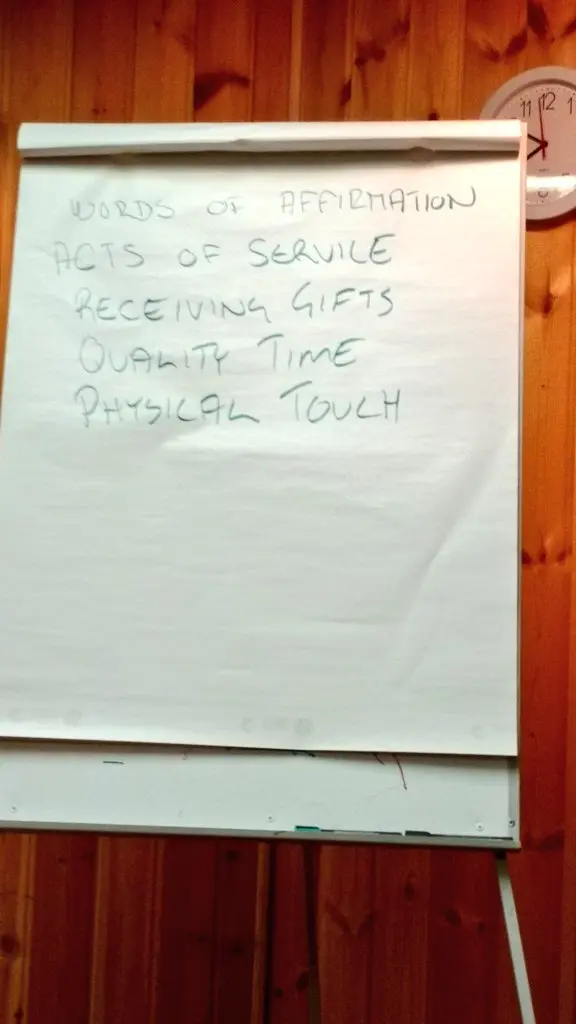 WORDS OF AFFIRMATION
ACTS OF SERVICE
RECEIVING GIFTS
QUALITY TIME
PHYSICAL TOUCH
11 12 1